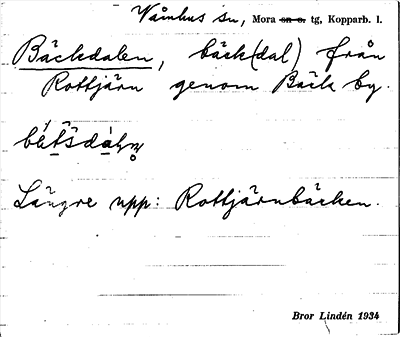 Våmhus sn, Mora sn o. tg, Kopparb. l.
Bäckdalen, bäck(dal) från
Rottjärn genom Bäck by.
Längre upp: Rottjärnbäcken.
Bror Lindén 1934